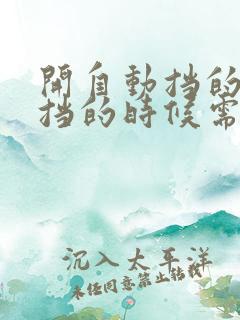 開自動挡的
挡的時候需
沉入太平洋
未经同意禁止转载